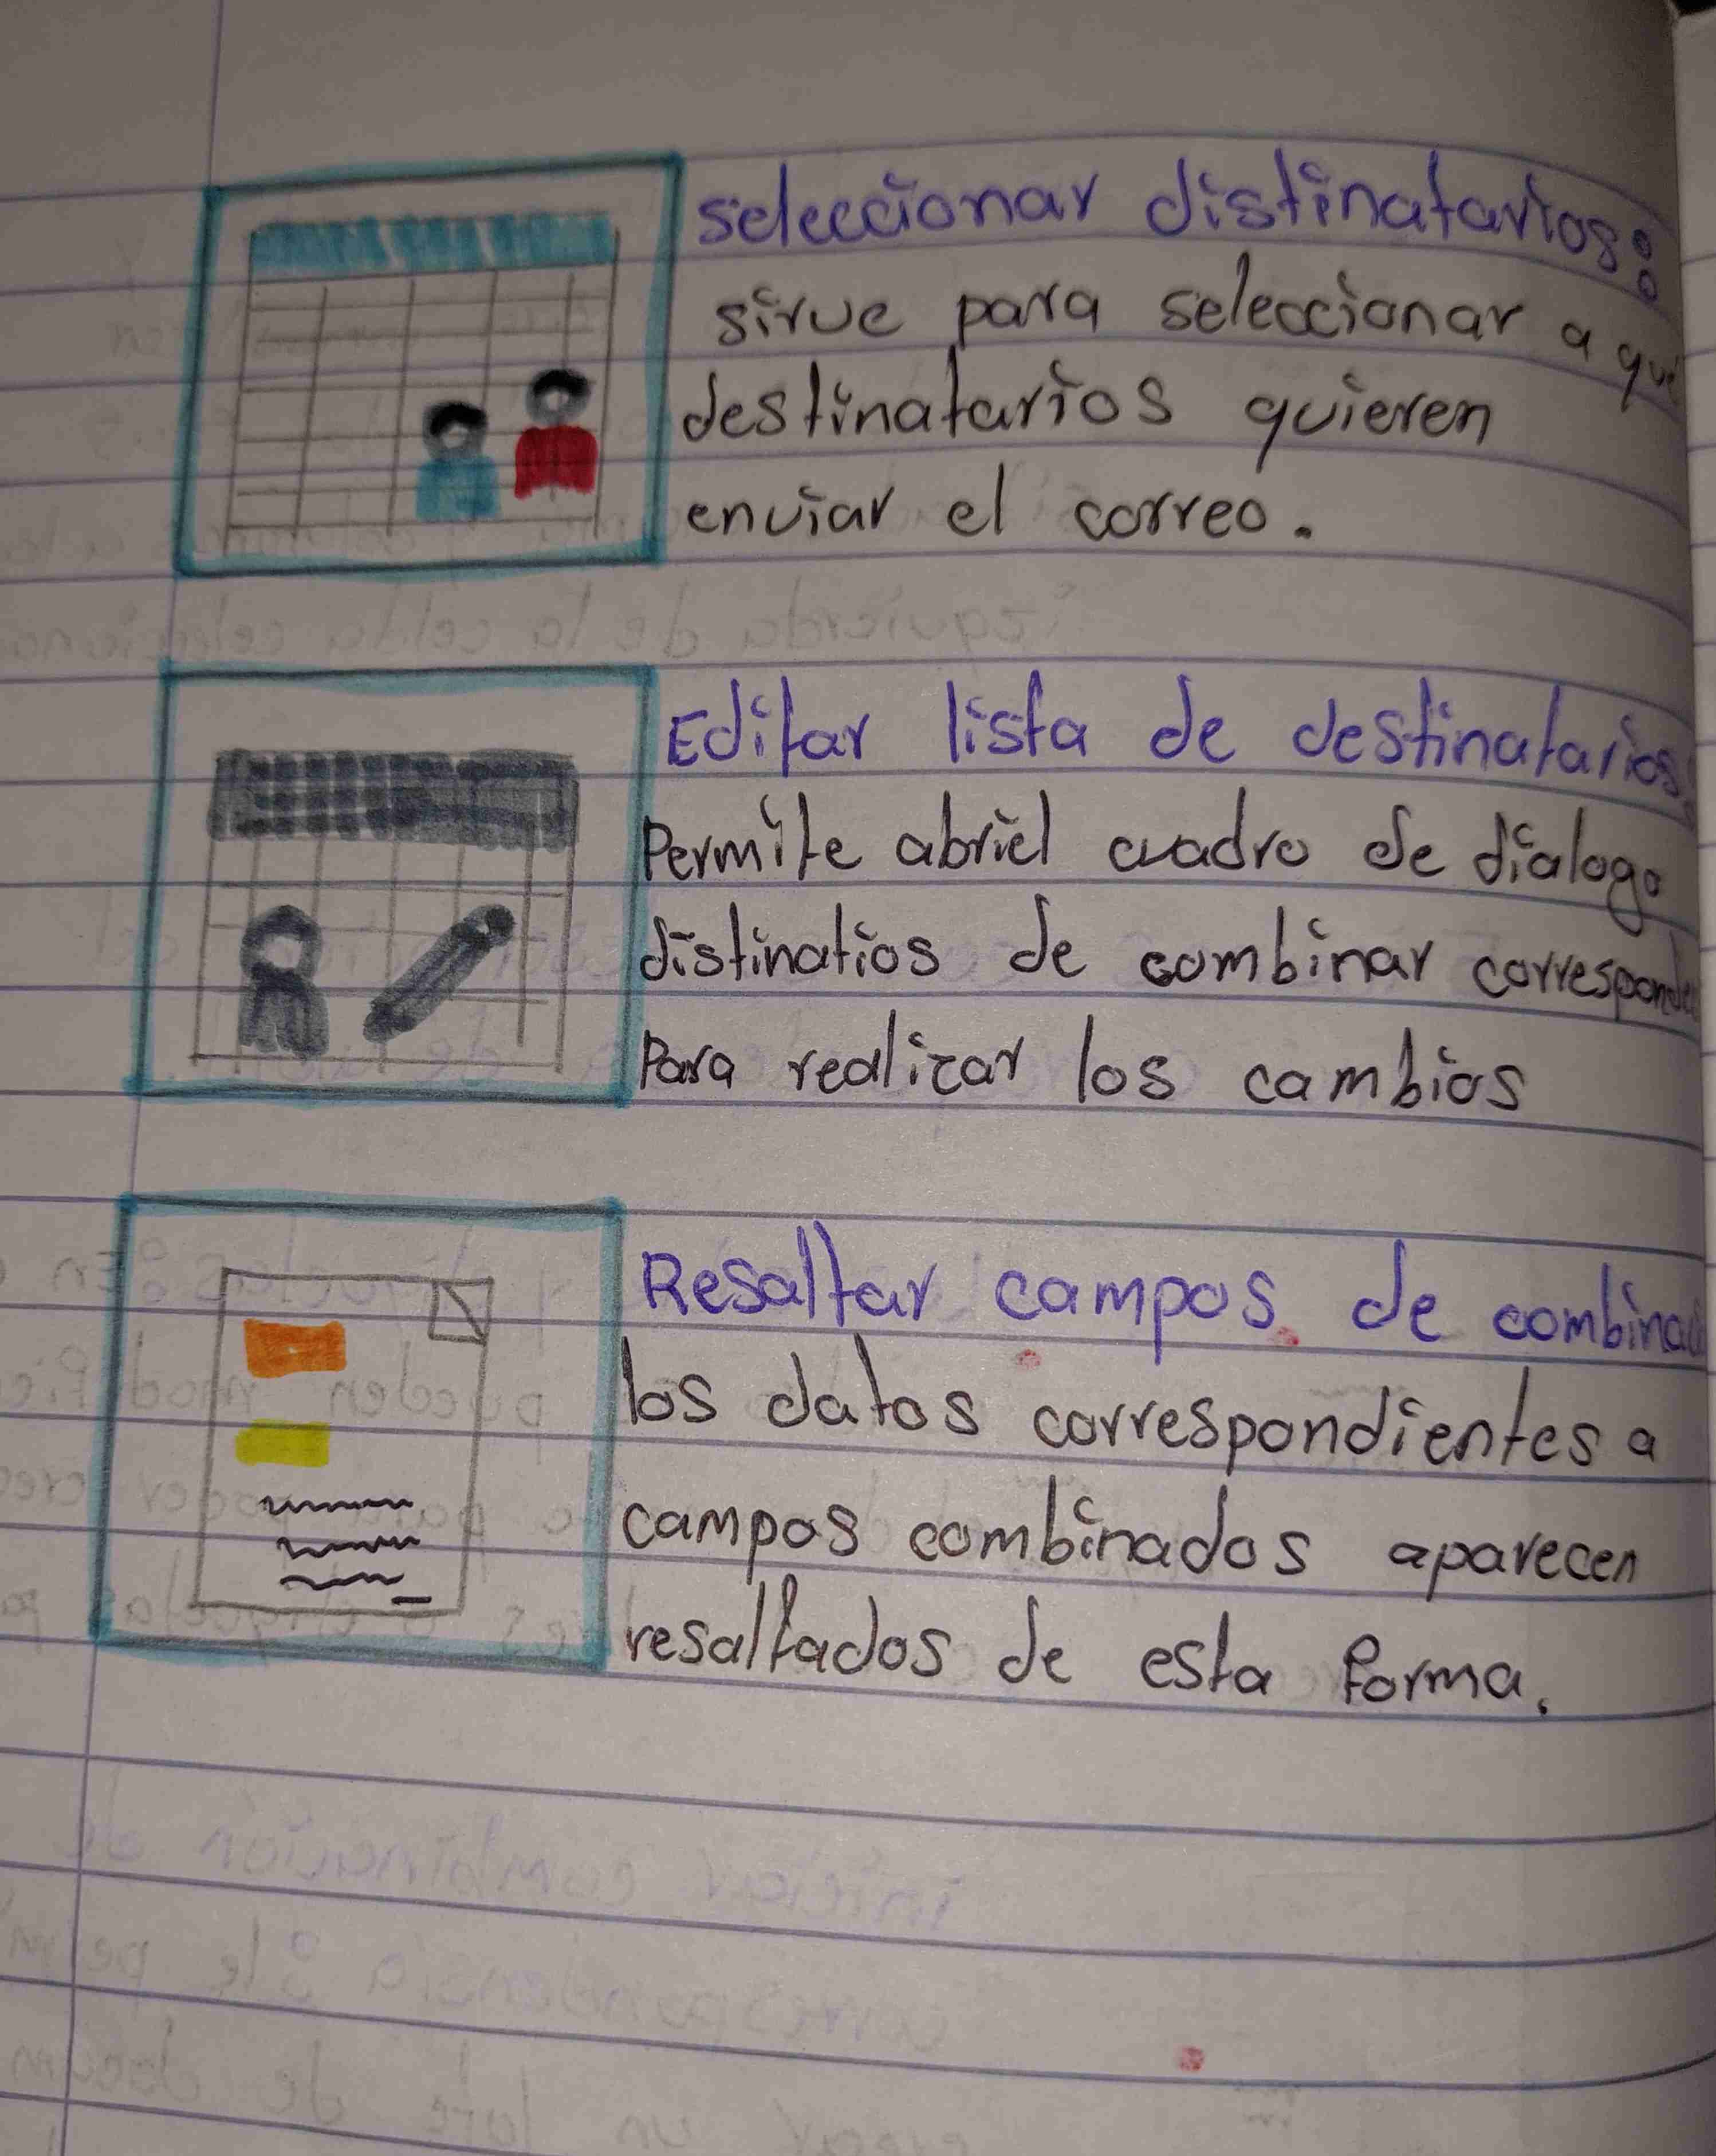 seleccionar distinatarios:
sirve para seleccionar a que
destinatarios quieren
enviar el correo.
Editar lista de destinatarios:
Permite abriel cuadro de dialogo
distinatios de combinar
Para realizar los cambios
Resaltar campos de
los datos correspondientes a
campos combinados aparecen
resaltados de esta forma.